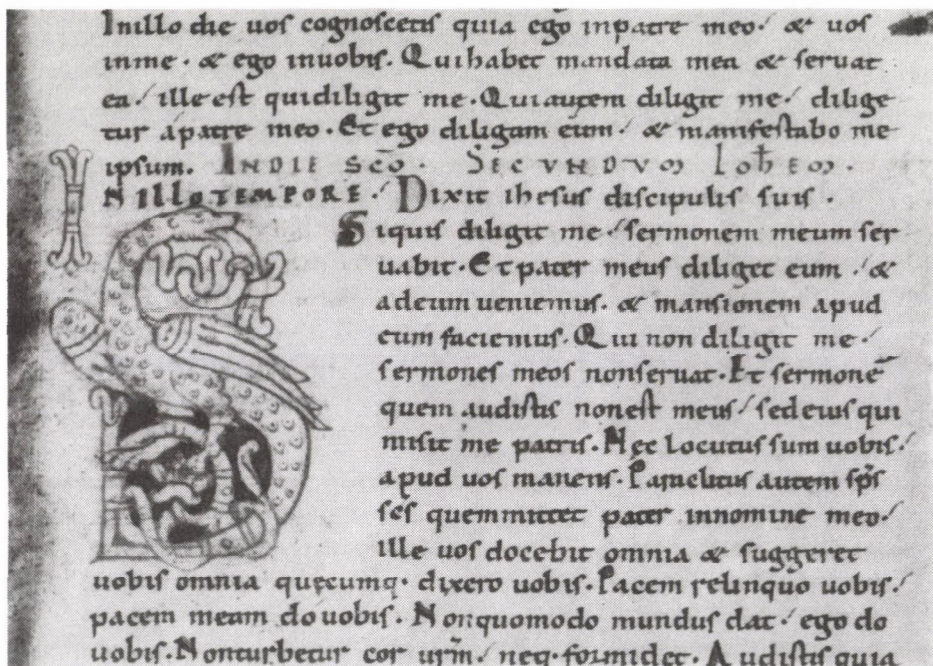 Inillo die uos cognoscetis quia ego inpatre meo. & uos
inme. & ego inuobis. Quihabet mandata mea & seruat
ea / ille est quidiligit me. Quiautem diligit me / dilige
tur apatre meo. Et ego diligam eum / & manifestabo me
ipsum. INDIE SCO. SECUNDUM IOHEM.
INILLOTEMPORE. Dixit ihesus discipulis suis.
Siquis diligit me / sermonem meum ser
uabit. Et pater meus diliget eum / &
adeum ueniemus. & mansionem apud
eum faciemus. Qui non diligit me /
sermones meos nonseruat. Et sermonē
quem audistis nonest meus / sedeius qui
misit me patris. Nec locutus sum uobis /
apud uos manens. Paraclitus autem sps
scs quemmittet pater innomine meo /
ille uos docebit omnia & suggeret
uobis omnia quecumq. dixero uobis. Pacem relinquo uobis /
pacem meam do uobis. Nonquomodo mundus dat / ego do
uobis. Nonturbetur cor urm / neq. formidet. Audistis quia